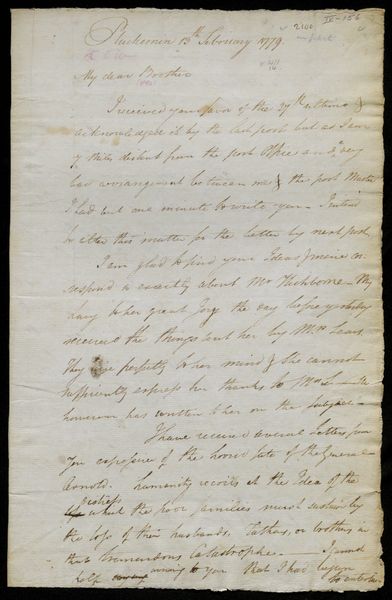 2100
Pluckemin 13th February 1779.
My dear Brother
I received your favor of the 27th ultimo &
acknowledged it by the last post but as I am
7 miles distant from the post Office and very
bad arrangement between me & the post Master
I had but one minute to write you. I intend
to alter this matter for the better by next post
I am glad to find your Ideas & mine cor-
respond so exactly about Mr
lucy to her great Joy the day before yesterday
received the things sent her by Mrs Sears.
They are perfectly to her mind & she cannot
sufficiently express her thanks to Mrs S
however has written to her on the subject
I have received several Letters from
you expressive of the horrid fate of the General
Arnold. Humanity recoils at the Idea of the
distress
which the poor families must sustain by
the loss of their husbands, fathers, or brothers in
that tremendous catastrophe. I cannot
help owning to you that I had begun
to entertain